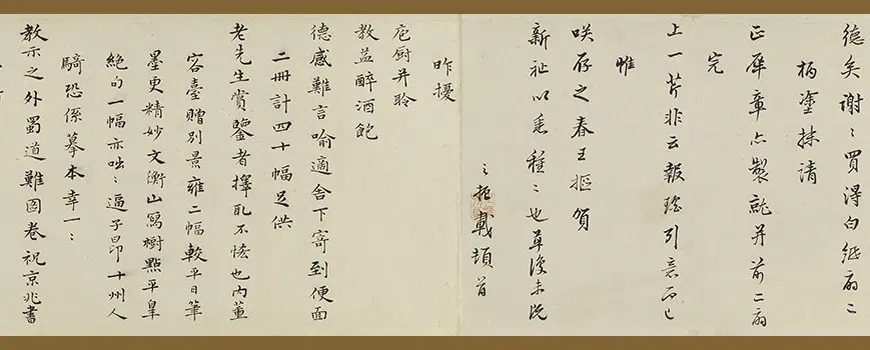 德矣謝〻買得白紙扇二
柄塗抹請
正犀章亦製就并前二扇
完
上一芹非云報瑤引意而已
惟
咲存之春王摳賀
新祉以罄種〻也草復未既
之拒載頓首
昨擾
庖厨并聆
教益醉酒飽
德感難言喻適舍下寄到便面
二冊計四十幅足供
老先生賞鑒者擇取不悋也內董
容臺贈別景雍二幅較平日筆
墨更精妙文衡山寫樹點平皋
絕句一幅亦咄〻逼子昂十州人
騎恐係摹本幸一〻
教示之外蜀道難圖卷祝京兆書